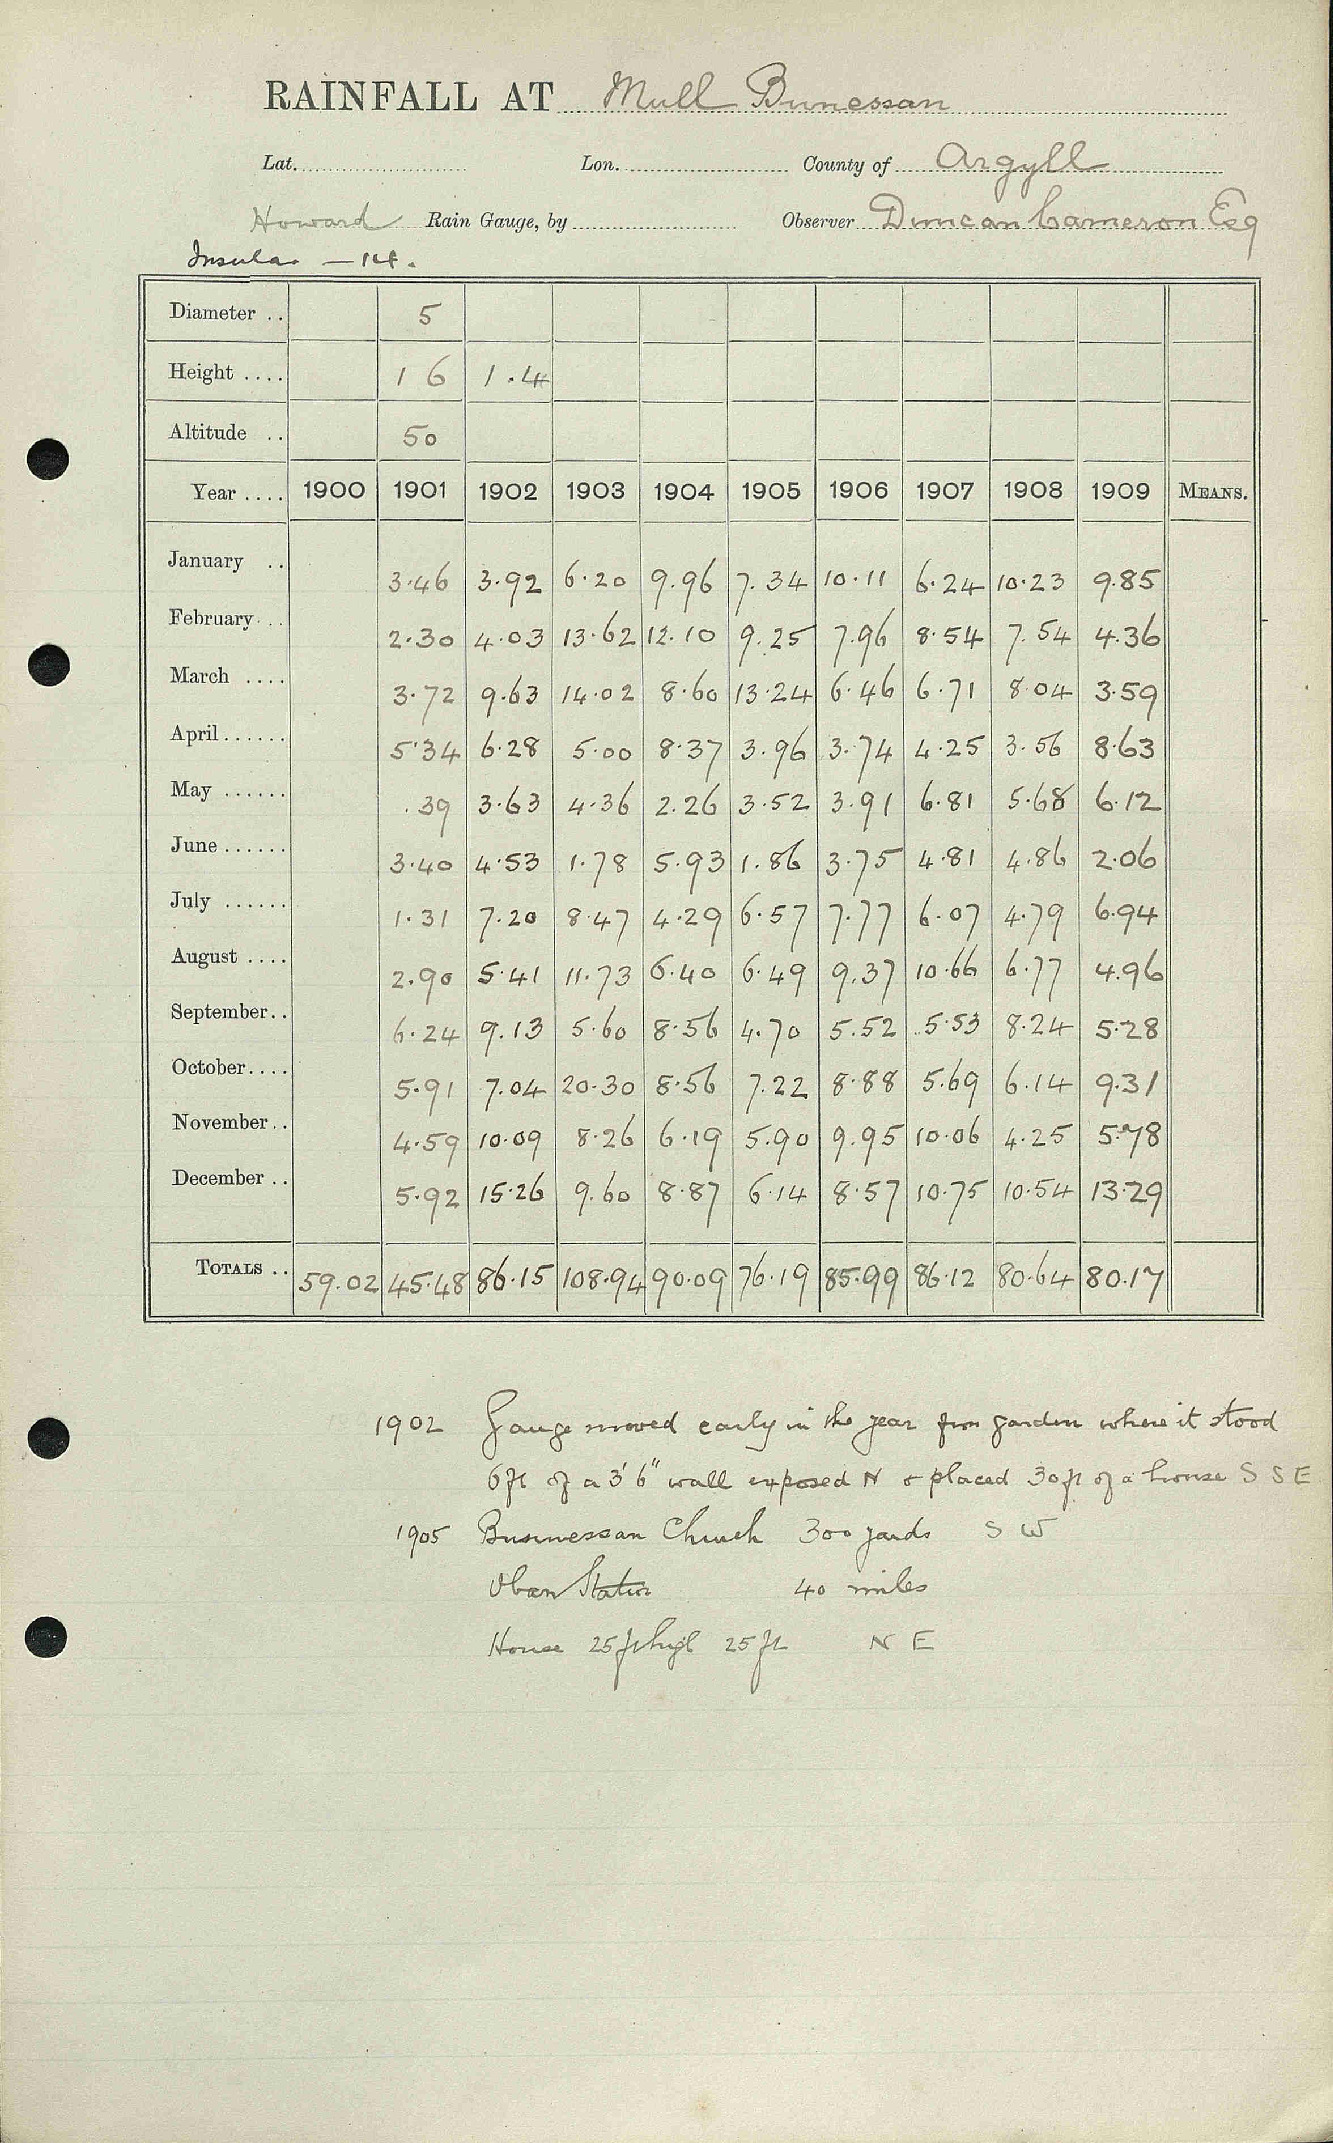 RAINFALL AT Mull Bunessan
Lat. Lon. County of Argyll
Howard Rain Gauge, by Observer Duncan Cameron Esq
Insular — 14.
Diameter .. 5
Height .... 1 6 1.4
Altitude .. 50
Year .... 1900 1901 1902 1903 1904 1905 1906 1907 1908 1909 MEANS.
January .. 3.46 3.92 6.20 9.96 7.34 10.11 6.24 10.23 9.85
February .. 2.30 4.03 13.62 12.10 9.25 7.96 8.54 7.54 4.36
March .... 3.72 9.63 14.02 8.60 13.24 6.46 6.71 8.04 3.59
April ...... 5.34 6.28 5.00 8.37 3.96 3.74 4.25 3.56 8.63
May ...... .39 3.63 4.36 2.26 3.52 3.91 6.81 5.68 6.12
June ...... 3.40 4.53 1.78 5.93 1.86 3.75 4.81 4.86 2.06
July ...... 1.31 7.20 8.47 4.29 6.57 7.77 6.07 4.79 6.94
August .... 2.90 5.41 11.73 6.40 6.49 9.37 10.66 6.77 4.96
September .. 6.24 9.13 5.60 8.56 4.70 5.52 5.53 8.24 5.28
October .... 5.91 7.04 20.30 8.56 7.22 8.88 5.69 6.14 9.31
November .. 4.59 10.09 8.26 6.19 5.90 9.95 10.06 4.25 5.78
December .. 5.92 15.26 9.60 8.87 6.14 8.57 10.75 10.54 13.29
TOTALS .. 59.02 45.48 86.15 108.94 90.09 76.19 85.99 86.12 80.64 80.17
1902 Gauge moved early in the year from garden where it stood
6 ft of a 3' 6" wall exposed N & placed 30 ft of a house S S E
1905 Bunnessan Church 300 yards S W
Oban Station 40 miles
House 25 ft high 25 ft N E